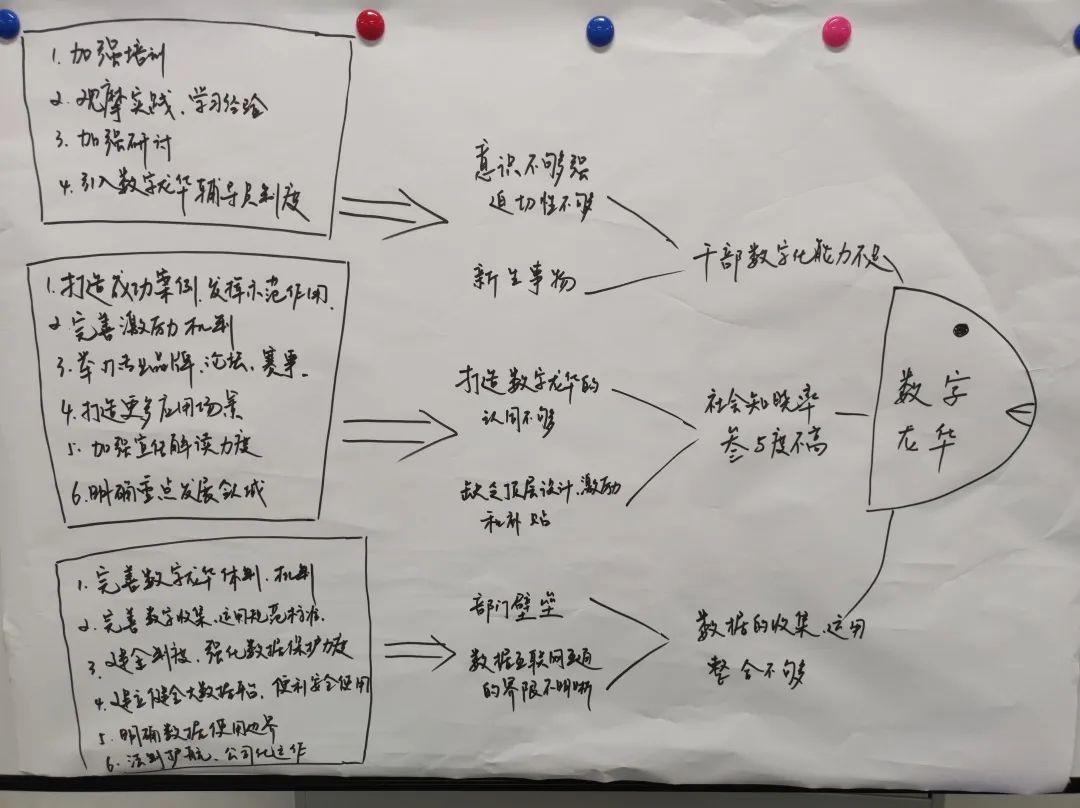 1. 加强培训
2. 观摩实践、学习经验
3. 加强研讨
4. 引入数字龙华辅导员制度
1. 打造成功案例,发挥示范作用.
2. 完善激励机制
3. 举办专业品牌、论坛、赛事.
4. 打造更多应用场景
5. 加强宣传解读力度
6. 明确重点发展领域
1. 完善数字龙华体制、机制
2. 完善数字收集、运用规范标准.
3. 建全制度、强化数据保护力度
4. 建立健全大数据平台,便利安全使用
5. 明确数据使用边界
6. 法制护航、公司化运作
意识不够强
迫切性不够
新生事物
打造数字龙华的
认同不够
缺乏顶层设计、激励
和补贴
部门壁垒
数据互联网互通
的界限不明晰
干部数字化能力不足
社会知晓率
参与度不高
数据的收集、运用
整合不够
数字
龙华